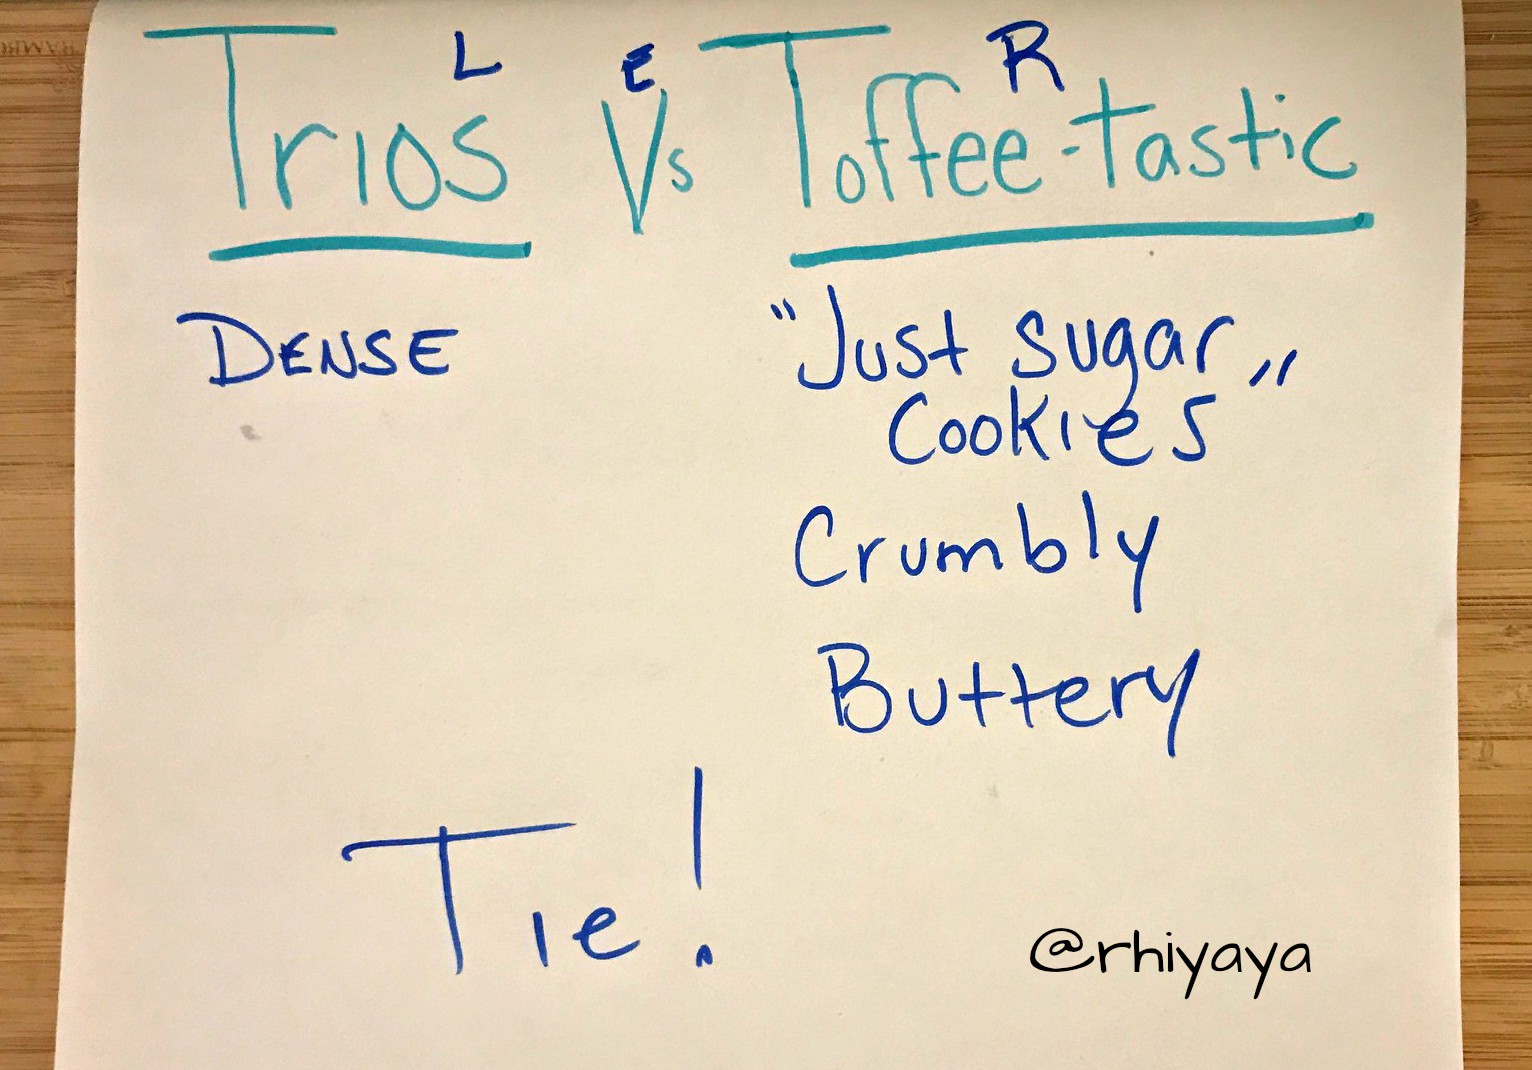 L E R
Trios Vs Toffee-tastic
DENSE
"Just sugar
Cookies"
Crumbly
Buttery
Tie!
@rhiyaya